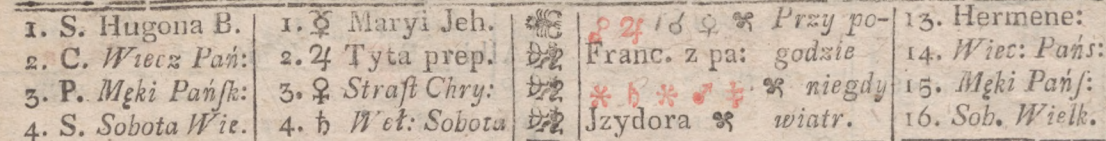 1. S. Hugona B. 1. ☿ Maryi Jeh. ♀ ♃ 1 ☌ ♀ Przy po- 13. Hermene:
2. C. Wiecz Pań: 2. ♃ Tyta prep. Franc. z pa: godzie 14. Wiec: Pańs:
3. P. Męki Pańſk: 3. ♀ Straſt Chry: ♄ ♂ niegdy 15. Męki Panſ:
4. S. Sobota Wie. 4. ♄ Weł: Sobota Jzydora wiatr. 16. Sob. Wielk.